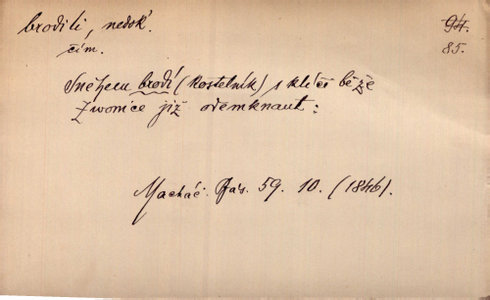 broditi, nedok. 94.
čím. 85.
Sněhem brodí (kostelník) s klíči běže
zwonice již odemknaut:
Macháč. 59. 10. (1846).